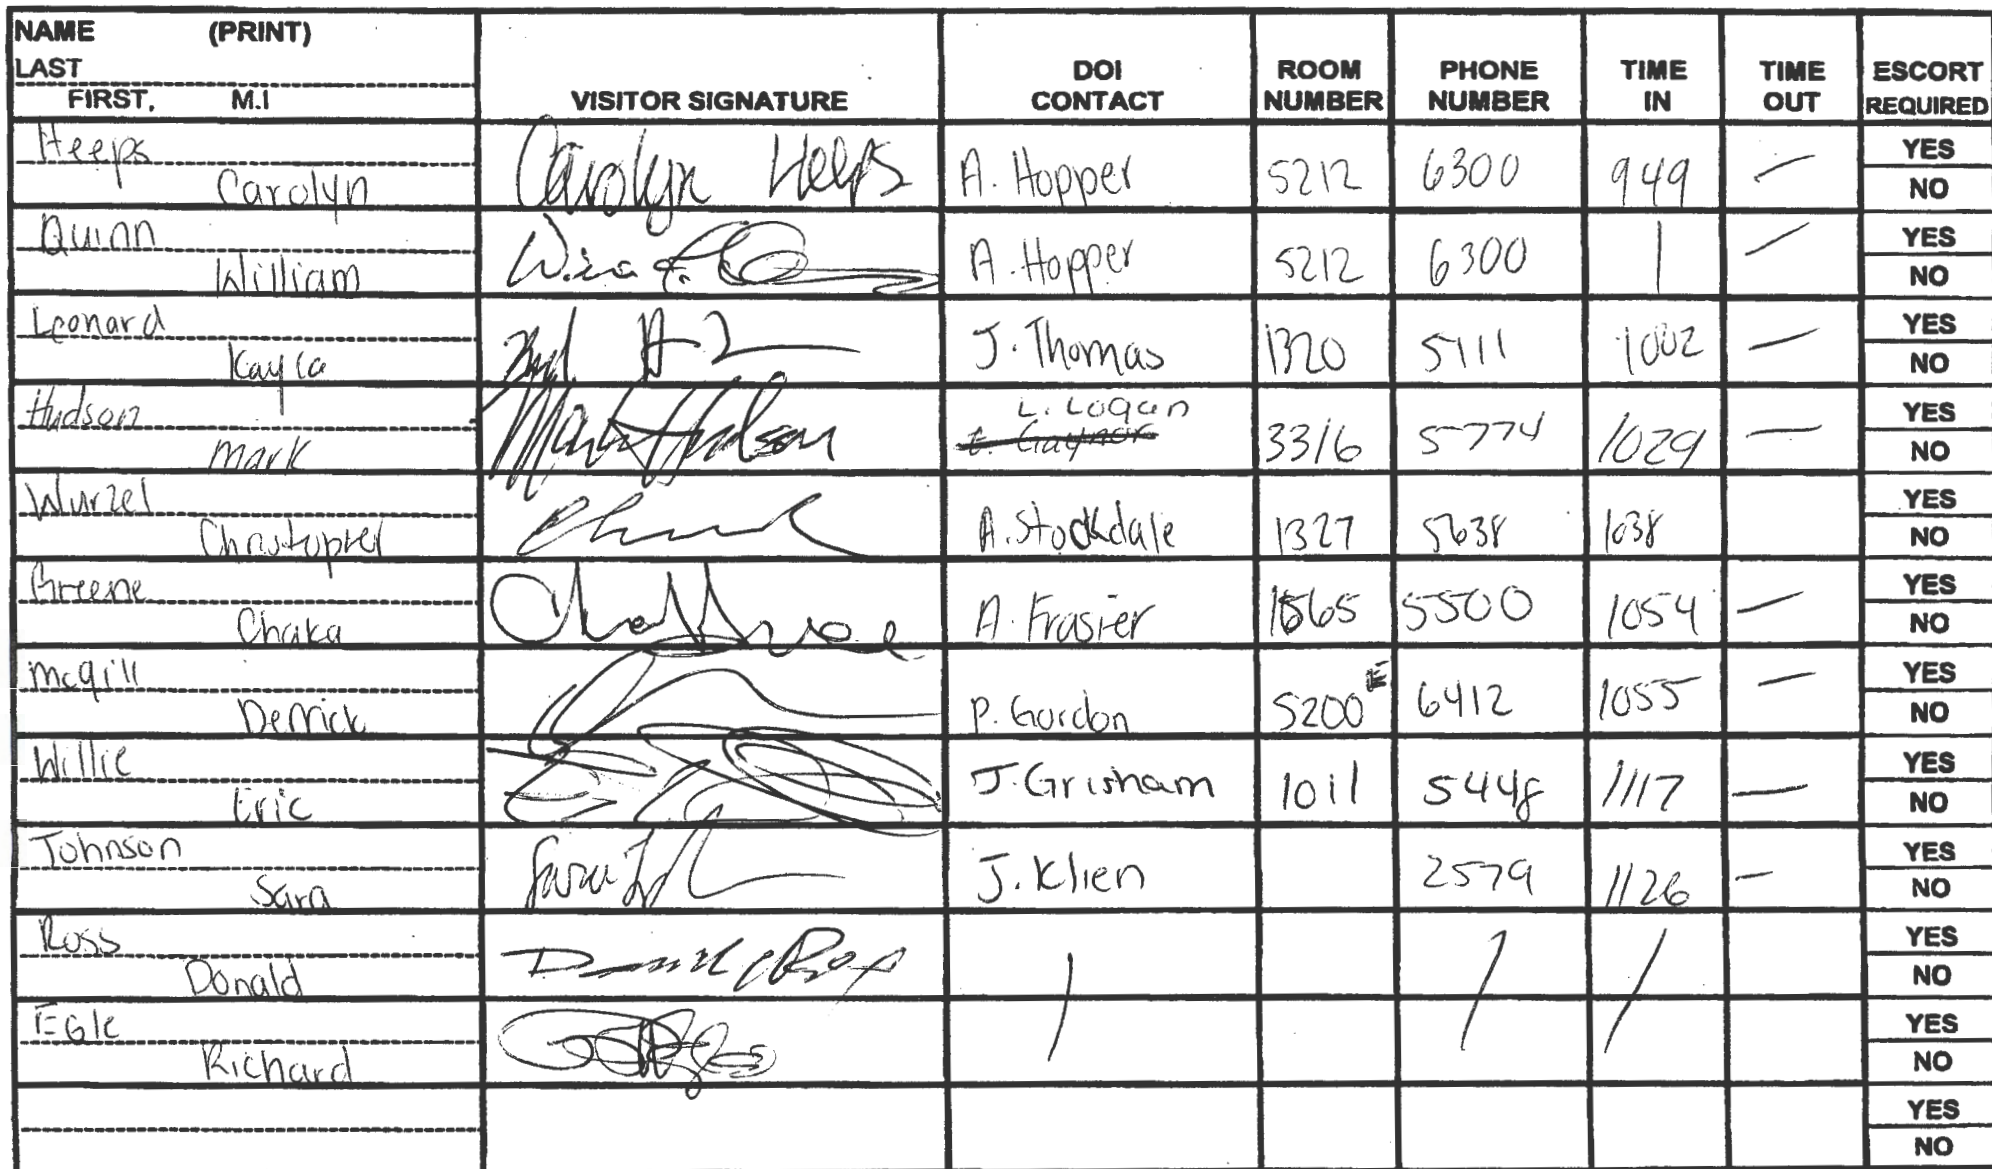 NAME (PRINT)
LAST
FIRST, M.I
VISITOR SIGNATURE
DOI CONTACT
ROOM NUMBER
PHONE NUMBER
TIME IN
TIME OUT
ESCORT REQUIRED
Heeps
Carolyn Carolyn Heeps A. Hopper 5212 6300 949 — YES NO
Quinn
William A. Hopper 5212 6300 | — YES NO
Leonard
Kayla J. Thomas 1320 5711 1002 — YES NO
Hudson
Mark Mark Hudson L. Logan 3316 5774 1029 — YES NO
Wurzel
Christopher A. Stockdale 1327 5638 1038 YES NO
Greene
Chaka A. Frasier 5500 1054 — YES NO
McGill
Derrick P. Gordon 5200 E 6412 1055 — YES NO
Willie
Eric J. Grisham 1011 5448 1117 — YES NO
Johnson
Sara J. Klien 2579 1126 — YES NO
Ross
Donald YES NO
EGle
Richard YES NO
YES NO